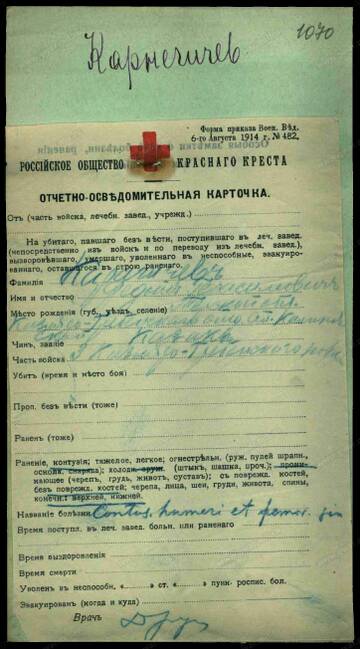 1070
Карнечичев
Форма приказа Воен. Вѣд.
6-го Августа 1914 г. № 482.
РОССІЙСКОЕ ОБЩЕСТВО КРАСНАГО КРЕСТА
ОТЧЕТНО-ОСВѢДОМИТЕЛЬНАЯ КАРТОЧКА.
Отъ (часть войска, лечебн. завед., учрежд.)
На убитаго, павшаго безъ вѣсти, поступившаго въ леч. завед.
(непосредствен. изъ войскъ и по переводу изъ лечебн. завед.),
выздоровѣвшаго, умершаго, уволеннаго въ неспособные, эвакуиро-
ваннаго, оставшагося въ строю раненаго.
Фамилія
Имя и отчество
Мѣсто рожденія (губ., уѣздъ, селеніе)
Чинъ, званіе Казакъ
Часть войска
Убитъ (время и мѣсто боя)
Проп. безъ вѣсти (тоже)
Раненъ (тоже)
Раненіе, контузія; тяжелое, легкое; огнестрѣльн. (руж. пулей шрапн.,
осколк. снаряда); холодн. оруж. (штыкъ, шашка, проч.); прони-
кающее (черепъ, грудь, животъ, суставъ); съ поврежд. костей,
безъ поврежд. костей; черепа, лица, шеи, груди, живота, спины,
конечн.: верхней, нижней.
Названіе болѣзни Contus. humeri et femor.
Время поступл. въ леч. завед. больн. или раненаго
Время выздоровленія
Время смерти
Уволенъ въ неспособн. « » ст. « » пунк. роспис. бол.
Эвакуированъ (когда и куда)
Врачъ